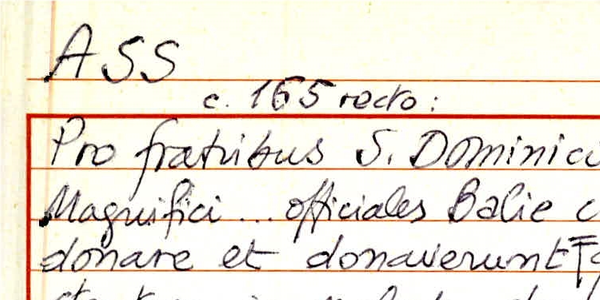 ASS
c. 165 recto:
Pro fratribus S. Dominici
Magnifici ... officiales Balie
donare et donaverunt